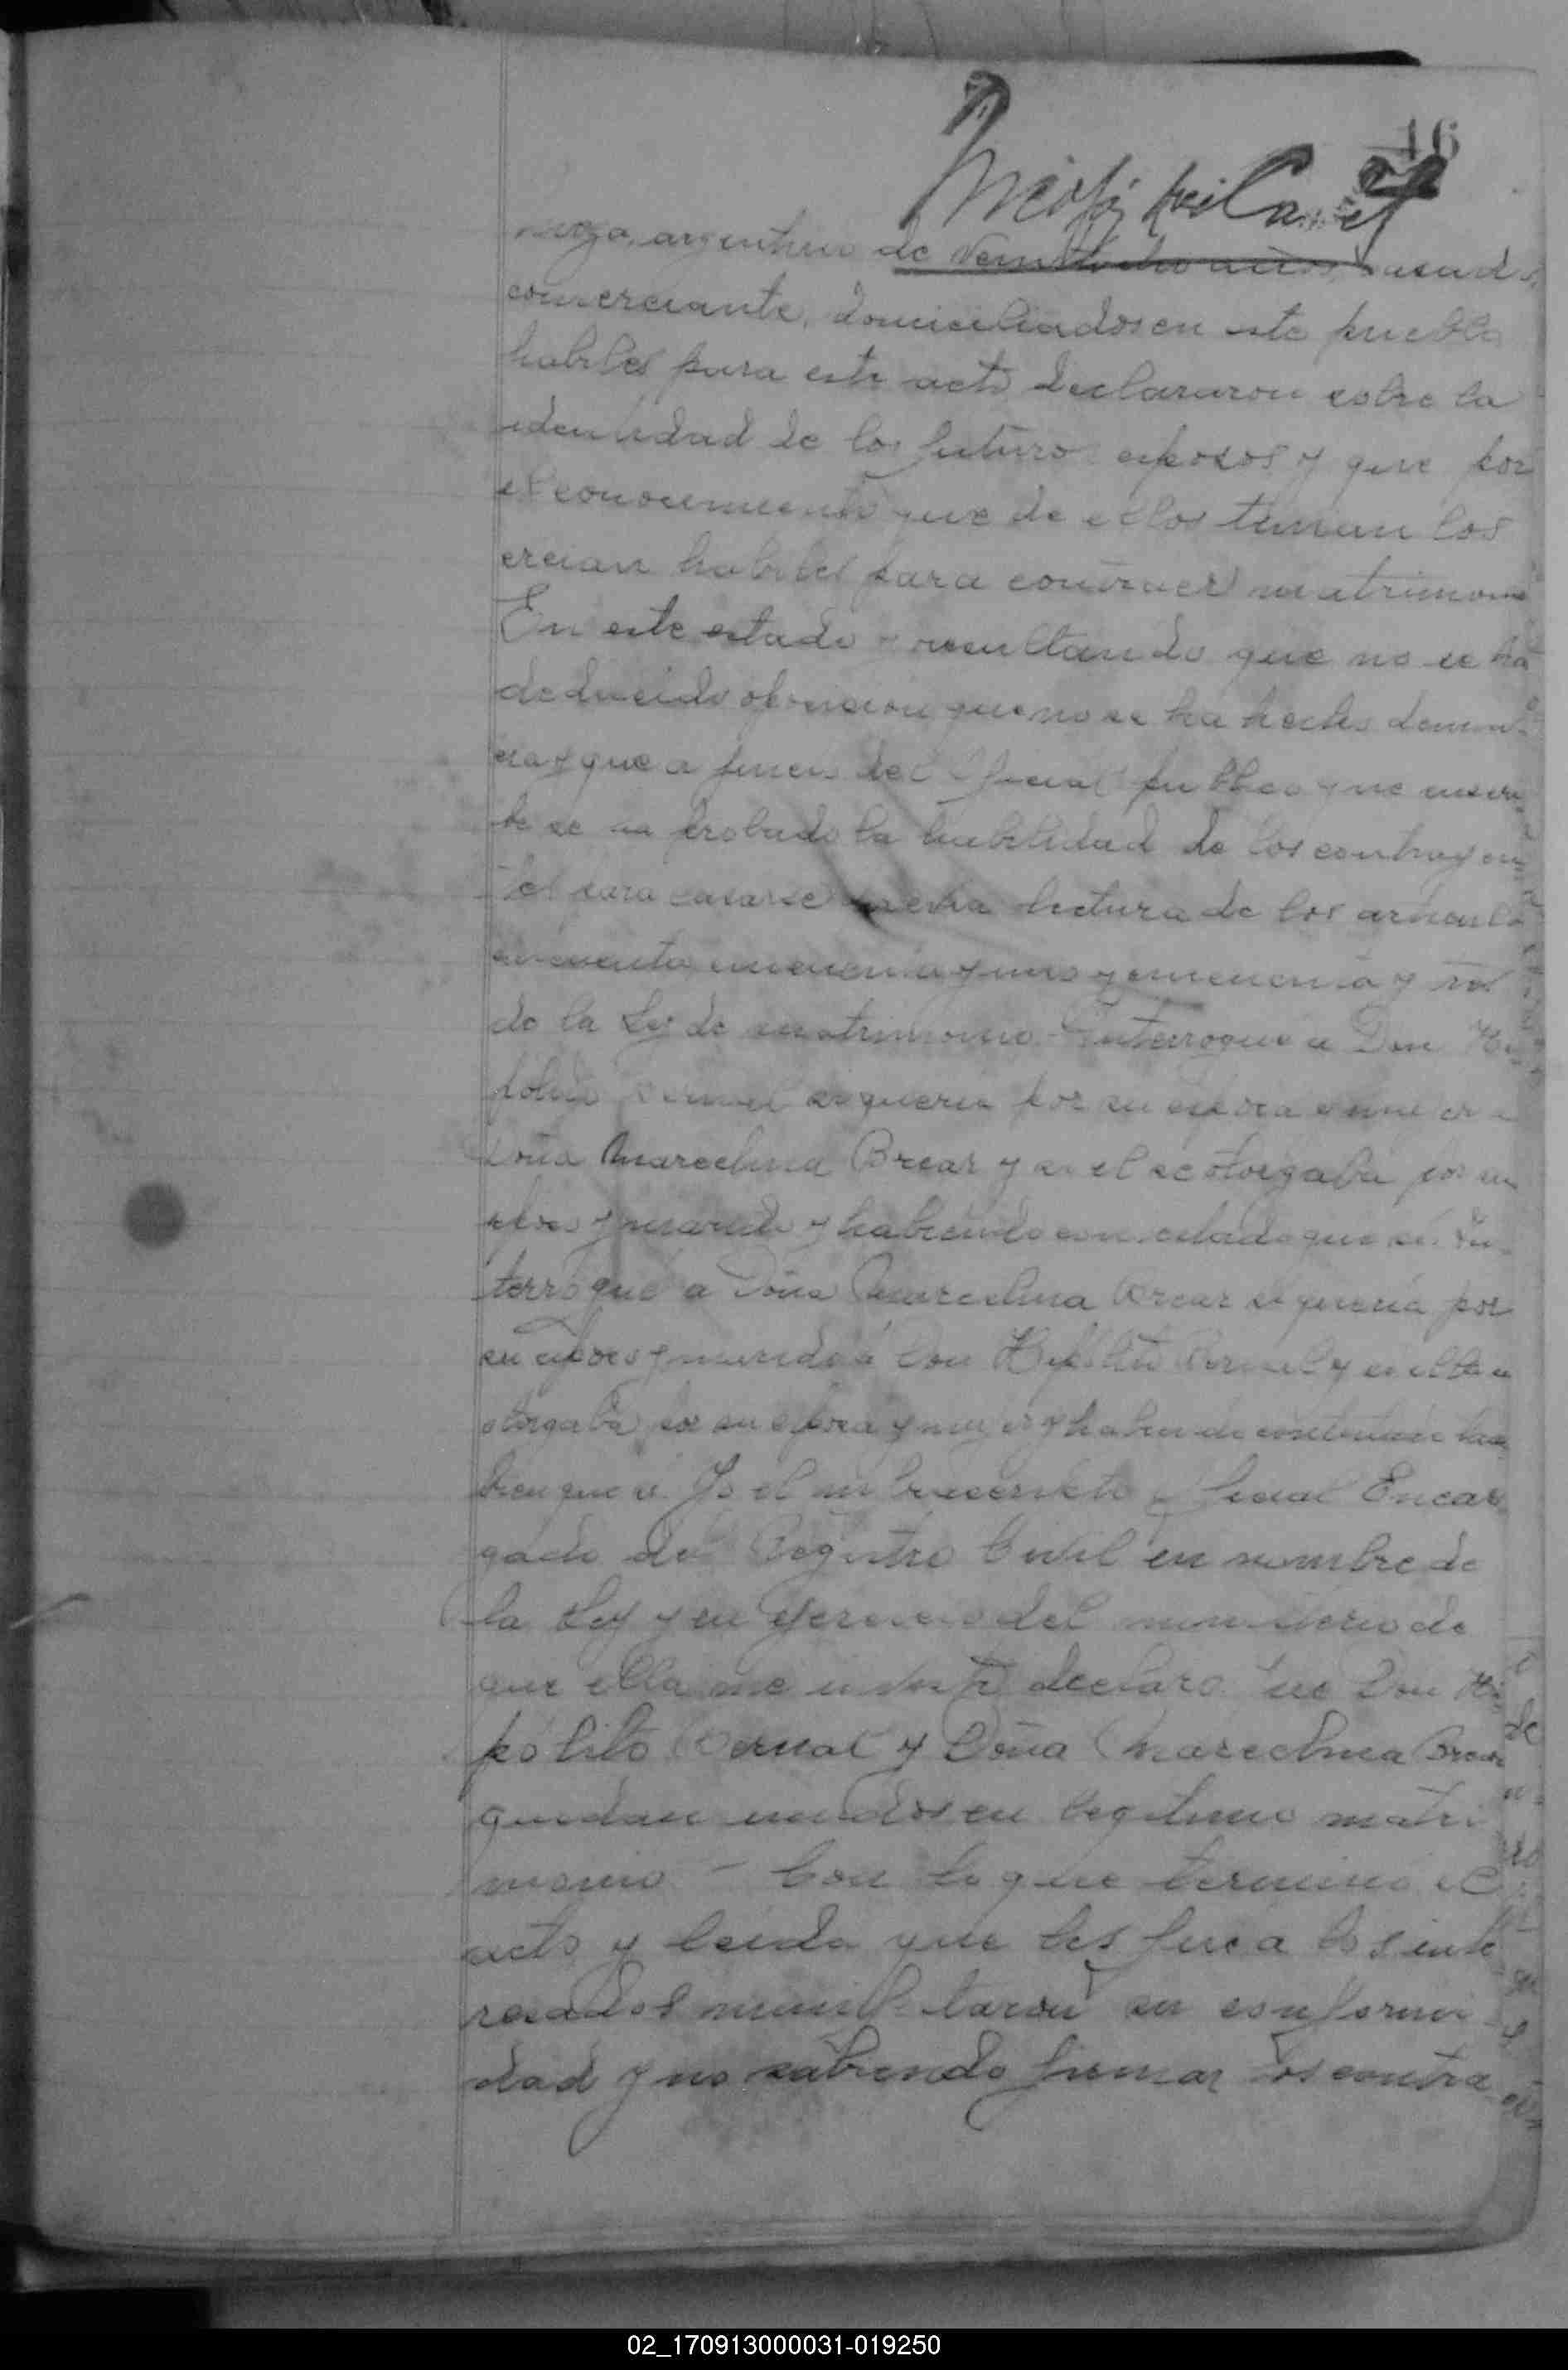 16
argentino de veintiocho años, casado,
comerciante, domiciliados en este pueblo
habiles para este acto declararon sobre la
identidad de los futuros esposos y que por
el conocimiento que de ellos tenian los
creian habiles para contraer matrimonio
En este estado y resultando que no se ha
deducido oposicion, que no se ha hecho denun-
cia y que a juicio del Oficial publico que suscri-
be se ha probado la habilidad de los contrayen
tes para casarse hecha lectura de los articulos
cincuenta, cincuenta y uno y cincuenta y tres
de la Ley de matrimonio. Interrogue a Don Hi
polito Bernal si queria por su esposa y mujer a
Doña Marcelina Brear y si el se otorgaba por su
esposo y marido y habiendo contestado que si. In-
terrogué a Doña Marcelina Brear si queria por
su esposo y marido á Don Hipolito Bernal y si ella se
otorgaba por su esposa y mujer y habiendo contestado tam
bien que si. Yo el infrascripto Oficial Encar
gado del Registro Civil en nombre de
la Ley y en ejercicio del ministerio de
que ella me inviste declaro que Don Hi
pólito Bernal y Doña Marcelina Brear
quedan unidos en legitimo matri
monio - Con lo que terminó el
acto y leida que les fue a los inte
resados manifestaron su conformi
dad y no sabiendo firmar los contra
02_170913000031-019250